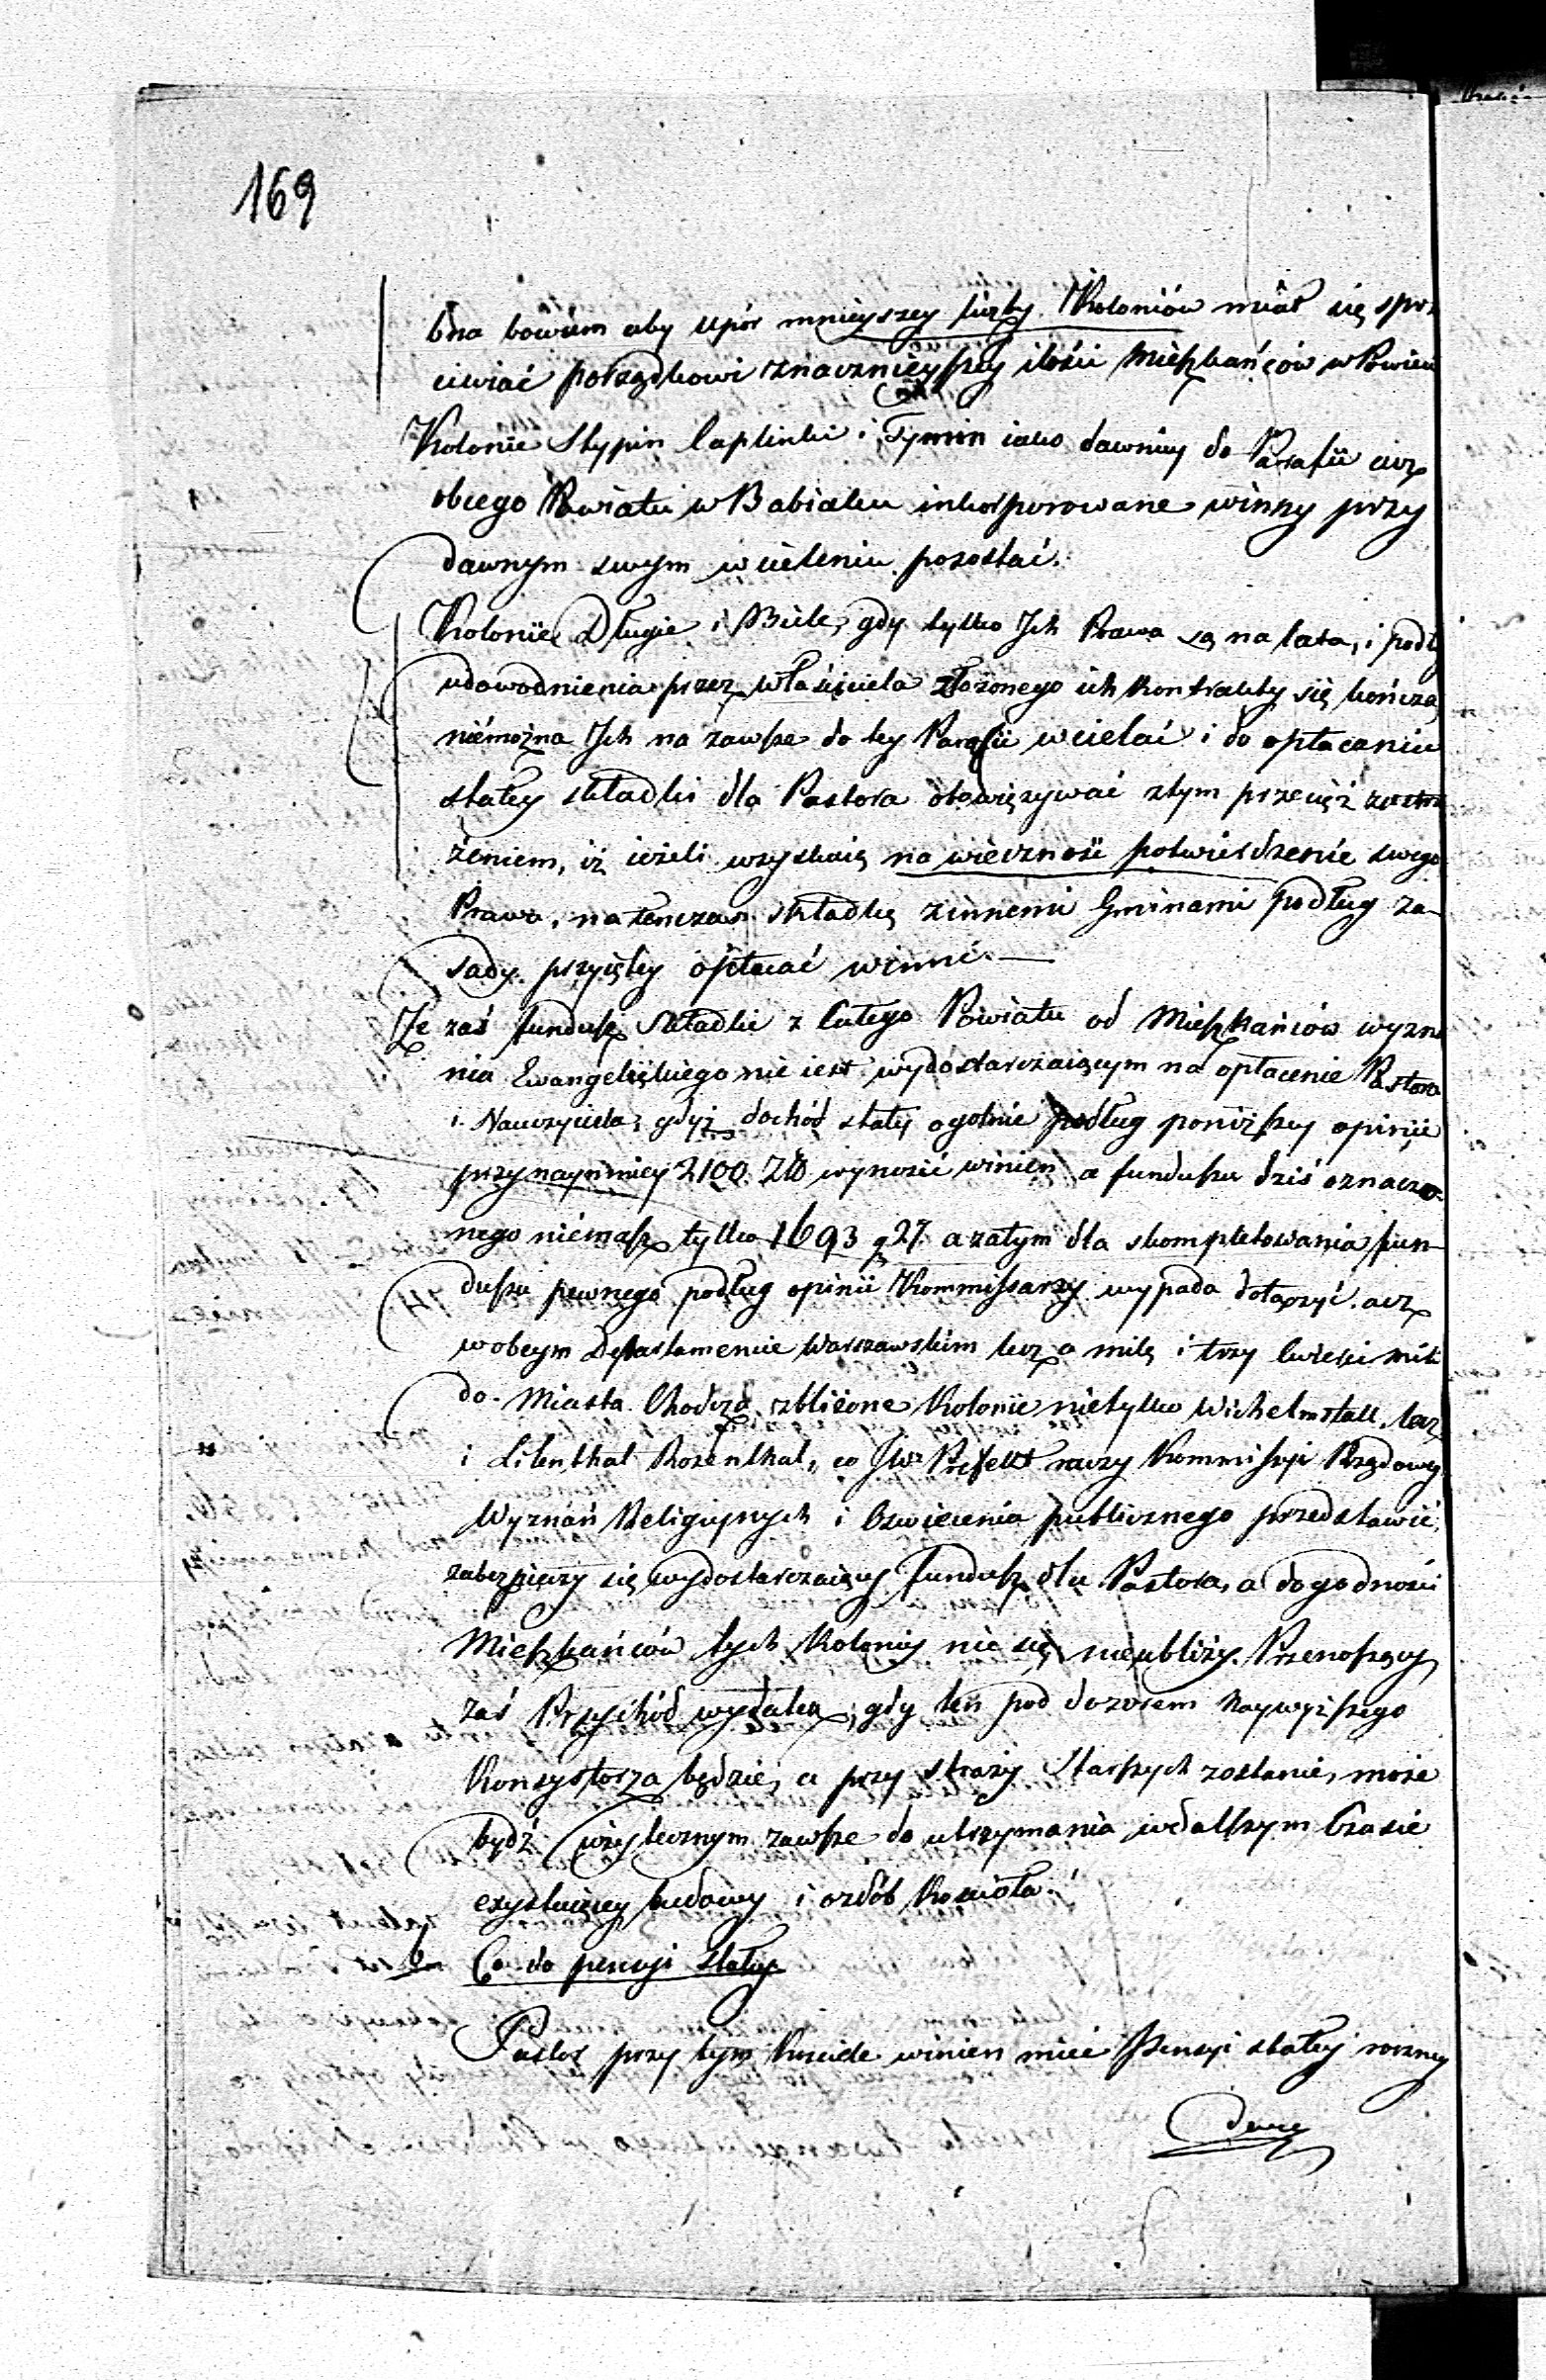 169
bna bowiem aby upór mnieyszey liczby Koloniów miał się sprze
ciwiać porządkowi znacznieyszey ilości Mieszkańców w Powiecie
Kolonie Słypin Caplinki i Tymin iako dawniey do Parafii acz
obcego Powiatu w Babiaku inkorporowane winny przy
dawnym swym wcieleniu pozostać.
Kolonie Długie i Biele, gdy tylko Jch Prawa są na lata, i podłg
udowodnienia przez właściciela złożonego ich Kontrakty się kończą,
niemożna Jch na zawsze do tey Parafii wcielać i do opłacania
stałey składki dla Pastora obowięzywać z tym przecięż zastrze
żeniem, iż ieżeli uzyskaią na wieczność potwierdzenie swego
Prawa, natenczas składkę z innemi Gminami podług za-
sady przyiętey opłacać winni. —
Że zaś fundusz Składki z Całego Powiatu od Mieszkańców wyzna
nia Ewangelickiego nie iest wydostarczaiącym na opłacenie Pastora
i Nauczyciela, gdyż dochód stały ogolnie podług poniższey opinii
przynaymniey 2100 Zło wynosić winien a funduszu dziś oznaczo-
nego niemasz tylko 1693 g 27 a zatym dla skompletowania fun-
duszu pewnego podług opinii Kommissarzy wypada dołączyć acz
w obcym Departamencie Warszawskim lecz o milę i trzy ćwierci mili
do Miasta Chodcza zbliżone Kolonie nietylko Wichelmstall, lecz
i Lilenthal Rosenthal, co JWr Prefekt raczy Kommissyi Rządowey
Wyznań Religijnych i Oswiecenia publicznego przedstawić,
zabezpieczy się wydostarczaiący fundusz dla Pastora, a dogodności
Mieszkańców tych Koloniy nic się nieubliży. Przenoszący
zaś Przychód wydatek, gdy ten pod dozorem Naywyższego
Konsystorza będzie, a przy straży Starszych zostanie, może
bydź użytecznym zawsze do utrzymania w dalszym Czasie
exystuiącey budowy i ozdób Kościoła.
Co do pensyi Stałey
Pastor przy tym Kościele winien mieć Pensyi stałey roczney